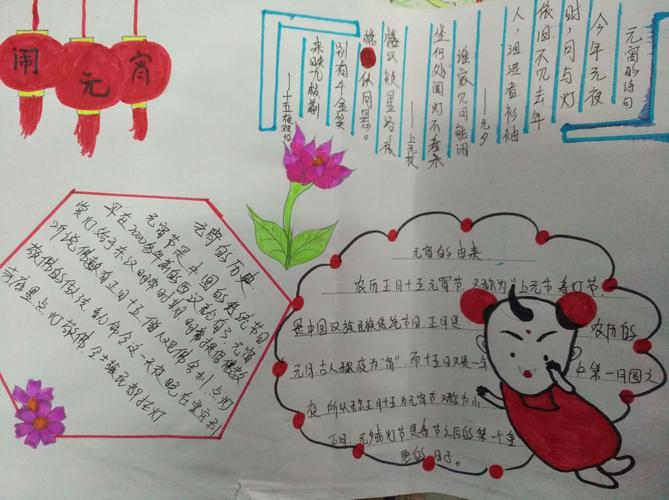 闹元宵
元宵的诗句
今年元夜
时,月与灯
依旧,不见去年
人,泪
衫袖
——元夕
谁家见月能闲
坐何处闻灯不看来
——上元夜
楼
别有千金笑
来映九枝前
——十五夜观灯
元宵的历史
元宵节是中国的传统节日
早在2000多年前的西汉就有了,元宵
赏灯始于东汉明帝时期,明帝提倡佛教
听说佛教有正月十五僧人观佛舍利,点灯
敬佛的做法,就命令这一天夜晚在皇宫和
寺庙里点灯敬佛,令士族庶民都挂灯
元宵的由来
农历正月十五元宵节,又称为“上元节,春灯节
是中国汉族民俗传统节日,正月是农历的
元月,古人称夜为“宵”,而十五日又是一年上第一月圆之
夜,所以称正月十五为元宵节,又称为小
正月、元夕或灯节,是春节之后的第一个重
要的日子。